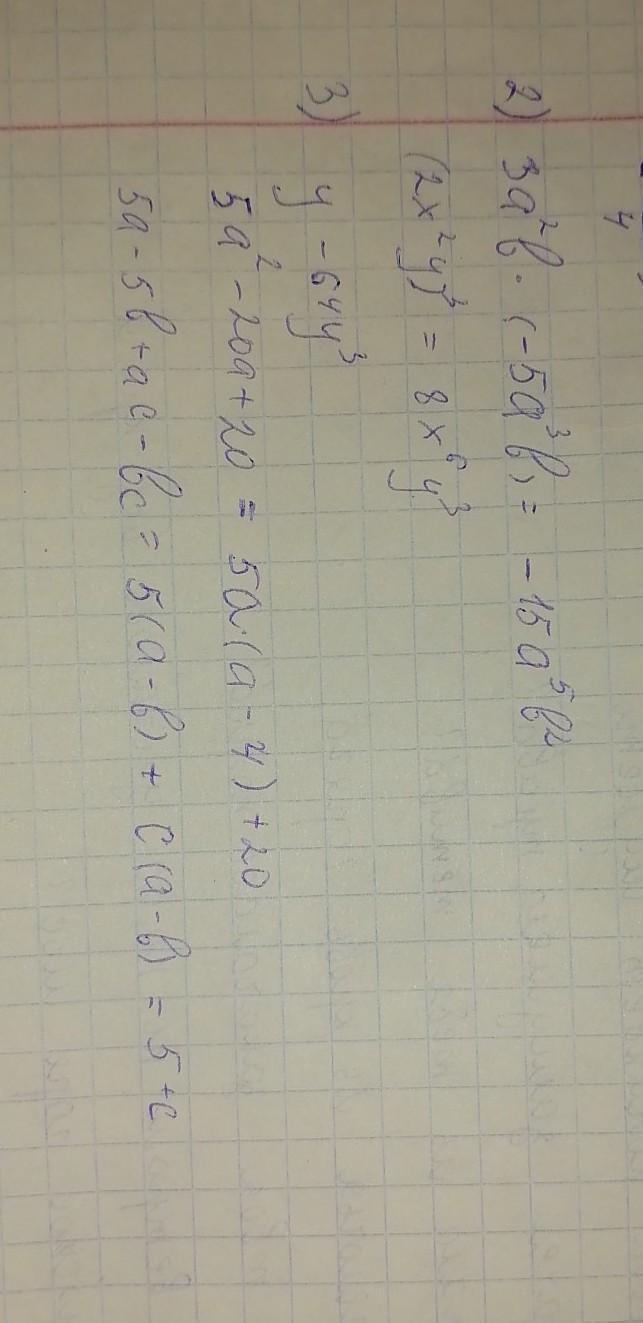 4
2) 3a²b · (-5a³b) = -15a⁵b²
(2x²y)³ = 8x⁶y³
3) y - 64y³
5a² - 20a + 20 = 5a·(a - 4) + 20
5a - 5b + ac - bc = 5(a - b) + c(a - b) = 5 + c